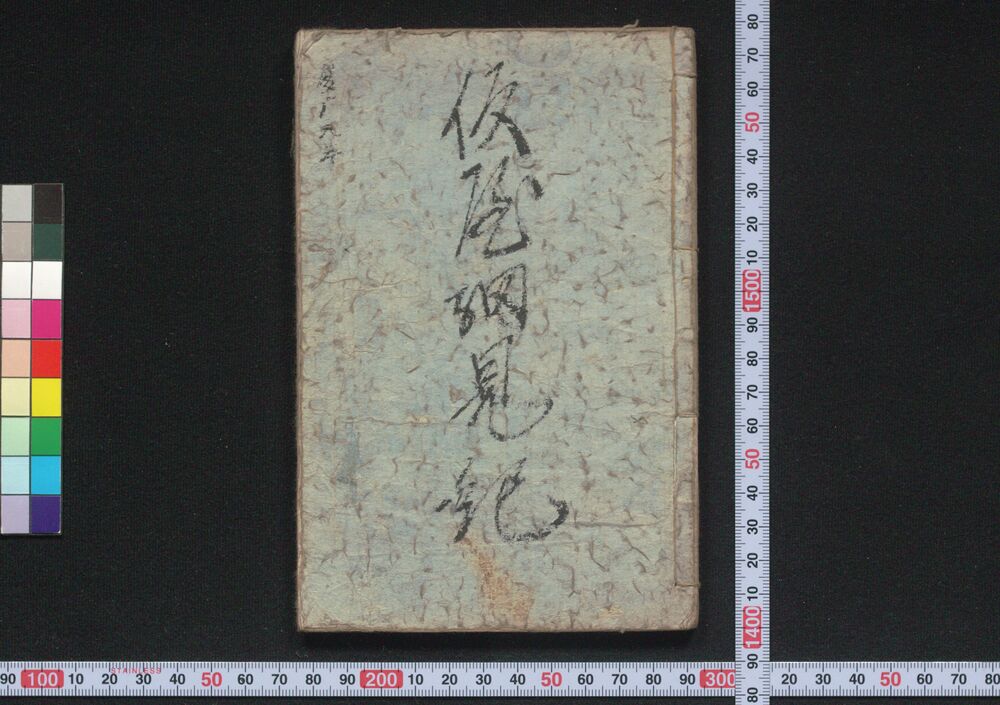 仮屋細見記
80
70
60
50
40
30
20
10
1500
90
80
70
60
50
40
30
20
10
1400
90
80
90 100 10 20 30 40 50 60 70 80 90 200 10 20 30 40 50 60 70 80 90 300 20 30 40 50 60 70 80
STAINLESS